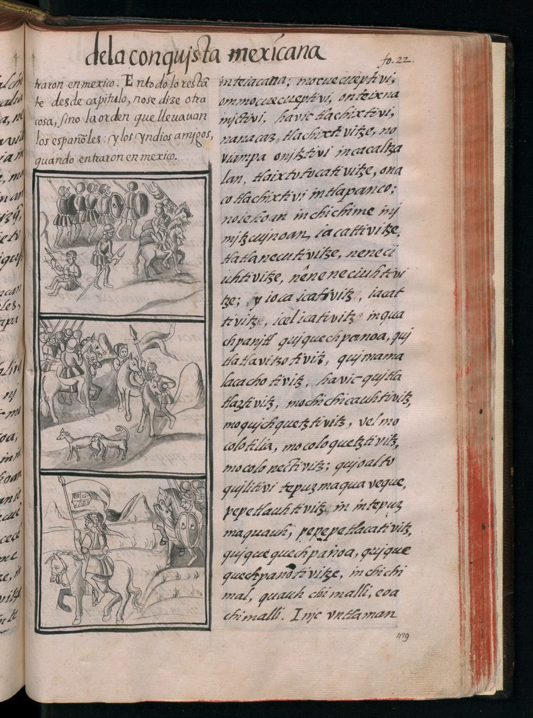 dela conquista mexicana
fo. 22.
traron en mexico. En todo lo resta
te desde capitulo, no se dise otra
cosa, sino la orden que lleuauan
los españoles: y los yndios amigos,
quando entraron en mexico.
inteiacana; mocuecueptivi;
ommocuecueptivi, onteixna
mjctivi. havic tlachixtivi;
nanacaz, tlachixtivitze, no
viampa onjtztivi incacaltza
lan, tlaixtotocativitze, ona
co tlachixtivi intlapanco:
noieioan inchichime inj
mjtzcujnoan, iacattivitze,
tlatlanecutivitze, neneci
uhtivitze, neneneciuhtivi
tze; yioca icativitz, iacat
tivitz, icelicativitz inqua
chpanjtl quiquechpanoa, quj
tlatlavitzotivitz, qujmama
lacachotivitz, havic qujtla
tlaztivitz, mochichicauhtivitz,
moquichquetztivitz, velmo
colotilia, mocoloquetztivitz,
mocolonectivitz; qujoalto
quilitivi tepuzmaquaveque,
pepetlauhtivitz, in intepuz
maquauh, pepepetlacativitz,
qujquequechpanoa, qujque
quechpanotivitze, inchichi
mal, quauhchimalli, eoa
chimalli. Injc vntlaman
479